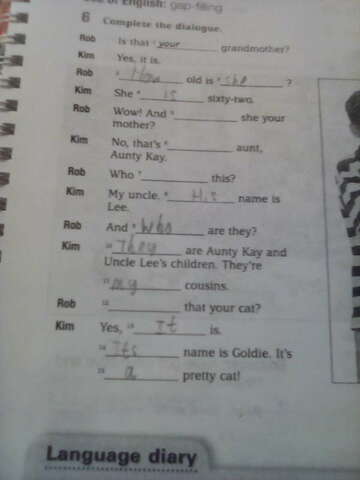 Use of English: gap-filling
6 Complete the dialogue.
Rob Is that ¹ your grandmother?
Kim Yes, it is.
Rob ² How old is ³ she ?
Kim She ⁴ is sixty-two.
Rob Wow! And ⁵ she your
mother?
Kim No, that's ⁶ aunt,
Aunty Kay.
Rob Who ⁷ this?
Kim My uncle. ⁸ His name is
Lee.
Rob And ⁹ who are they?
Kim ¹⁰ They are Aunty Kay and
Uncle Lee's children. They're
¹¹ my cousins.
Rob ¹² that your cat?
Kim Yes, ¹³ It is.
¹⁴ Its name is Goldie. It's
¹⁵ a pretty cat!
Language diary